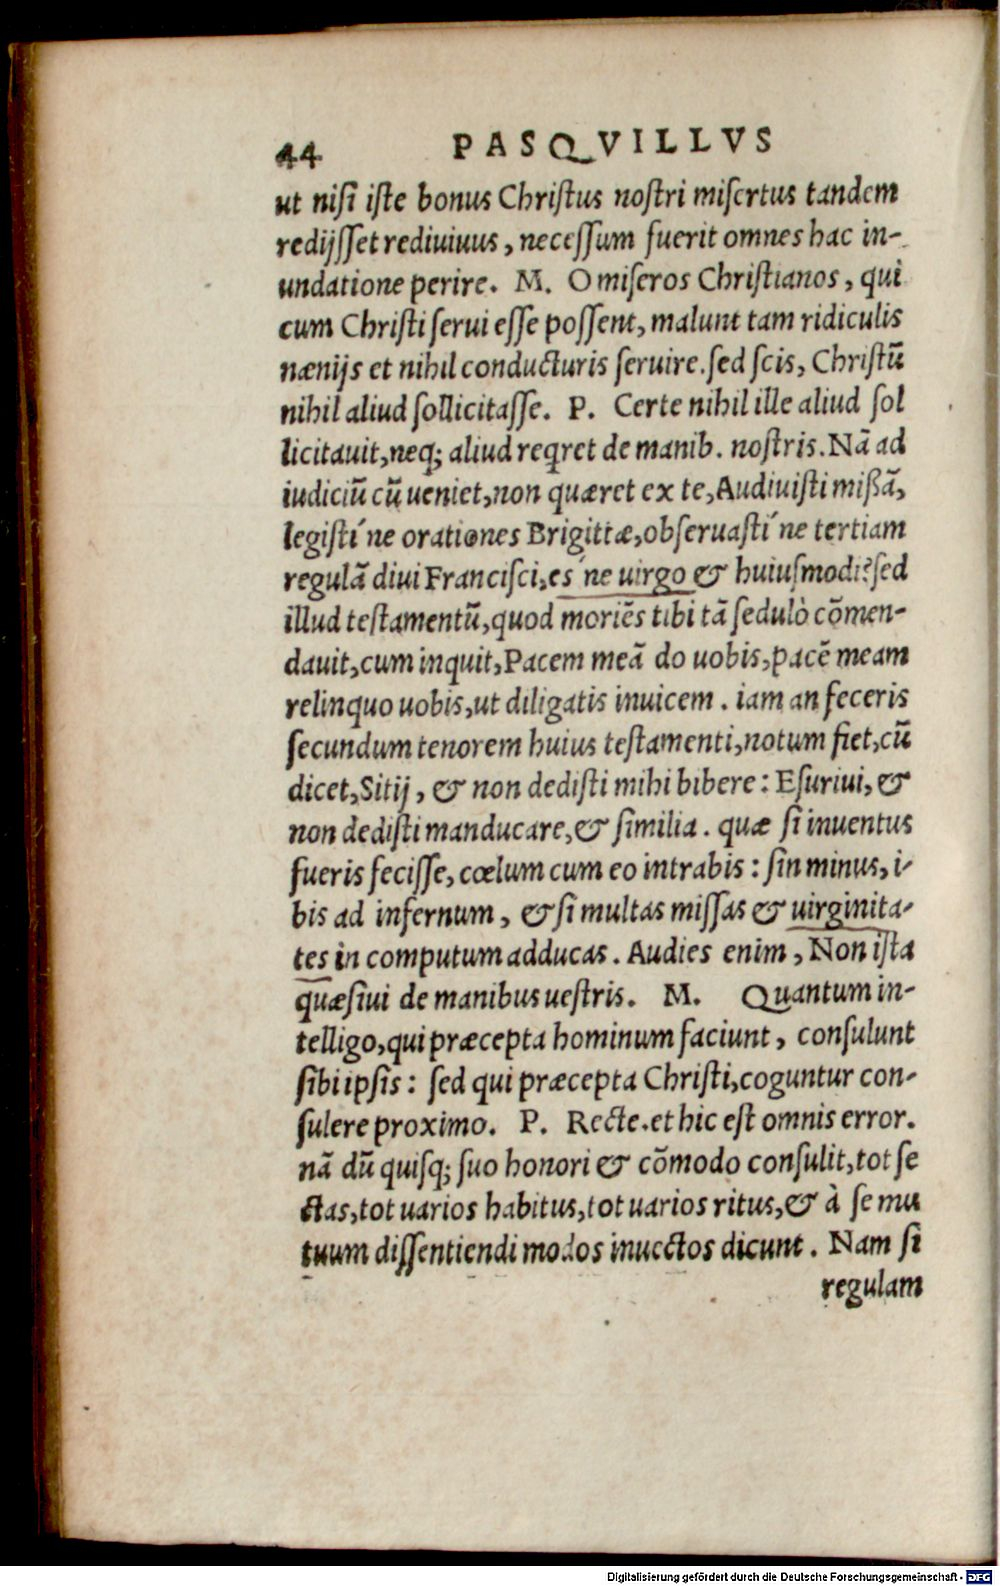 44 PASQVILLVS
ut nisi iste bonus Christus nostri misertus tandem
redijsset rediuiuus, necessum fuerit omnes hac in-
undatione perire. M. O miseros Christianos, qui
cum Christi serui esse possent, malunt tam ridiculis
nænijs et nihil conducturis seruire. sed scis, Christū
nihil aliud sollicitasse. P. Certe nihil ille aliud sol
licitauit, neq; aliud reqret de manib. nostris. Nā ad
iudiciū cū ueniet, non quæret ex te, Audiuisti mißā,
legisti´ne orationes Brigittæ, obseruasti´ne tertiam
regulā diui Francisci, es´ne uirgo & huiusmodi? sed
illud testamentū, quod moriēs tibi tā sedulò cōmen-
dauit, cum inquit, Pacem meā do uobis, pacē meam
relinquo uobis, ut diligatis inuicem. iam an feceris
secundum tenorem huius testamenti, notum fiet, cū
dicet, Sitij, & non dedisti mihi bibere: Esuriui, &
non dedisti manducare, & similia. quæ si inuentus
fueris fecisse, cœlum cum eo intrabis: sin minus, i-
bis ad infernum, & si multas missas & uirginita-
tes in computum adducas. Audies enim, Non ista
quæsiui de manibus uestris. M. Quantum in-
telligo, qui præcepta hominum faciunt, consulunt
sibi ipsis: sed qui præcepta Christi, coguntur con-
sulere proximo. P. Recte. et hic est omnis error.
nā dū quisq; suo honori & cōmodo consulit, tot se
ctas, tot uarios habitus, tot uarios ritus, & à se mu
tuum dissentiendi modos inuectos dicunt. Nam si
regulam
Digitalisierung gefördert durch die Deutsche Forschungsgemeinschaft - DFG